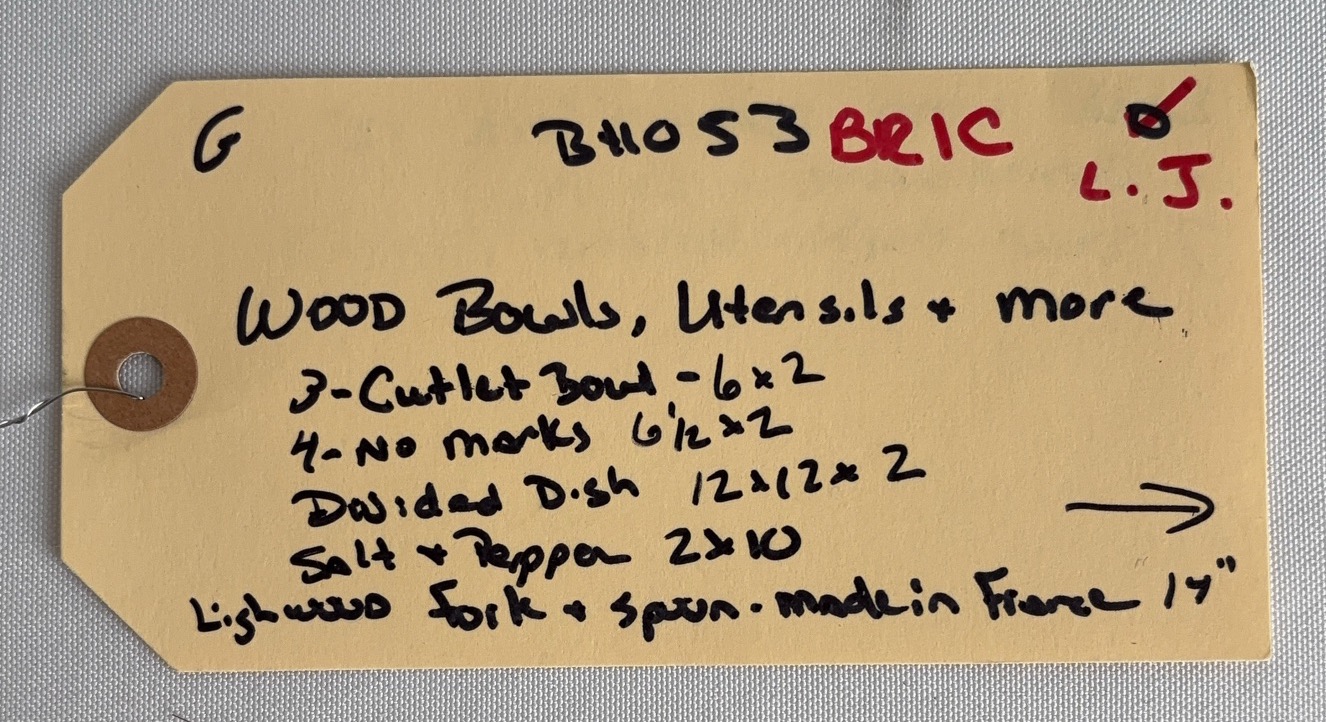 G BH1053 BRIC
L.J.
WOOD Bowls, Utensils + more
3-Cutlet Bowl - 6x2
4-No marks 6 1/2 x 2
Divided Dish 12x12x2
Salt + Pepper 2x10
Lighwood fork + spoon. made in France 14"